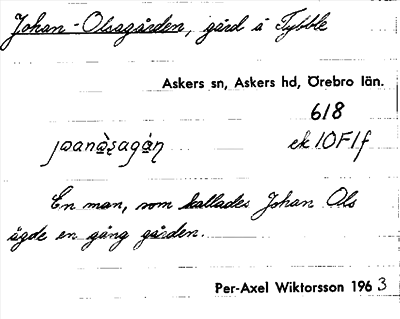 Johan-Olsagården, gård å Tybble
Askers sn, Askers hd, Örebro län.
618
jωanàsagáṇ ek 10F1f
En man, som kallades Johan Ols
ägde en gång gården.
Per-Axel Wiktorsson 1963